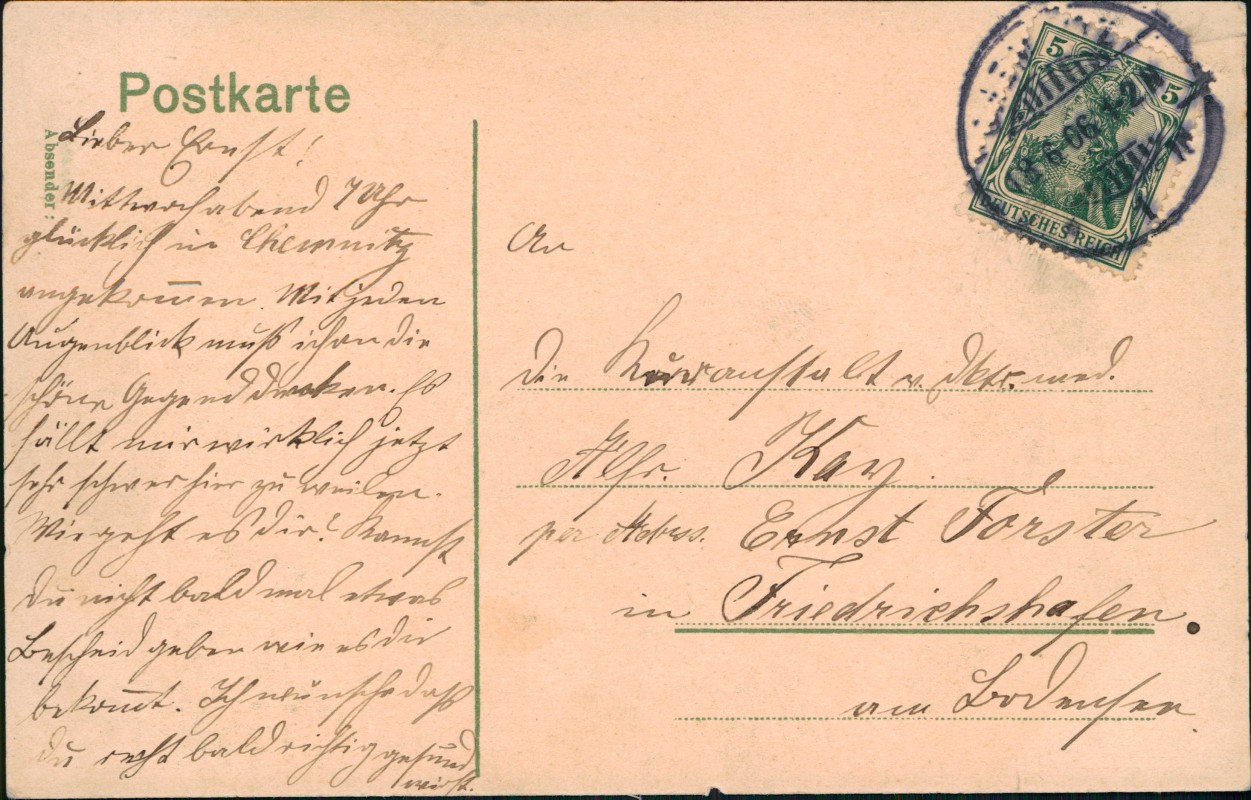 Postkarte
Absender:
Lieber Ernst!
Mittwochabend 7 Uhr
glücklich in Chemnitz
angekom̅en. Mit jeden
Augenblick muß ich an die
schöne Gegend denken. Es
fällt mir wirklich jetzt
sehr schwer hier zu weilen.
Wie geht es dir? Kannst
du nicht bald mal etwas
Bescheid geben wie es dir
bekom̅t. Ich wünsche daß
du recht bald richtig gesund
wirst.
5 5
18.6.06. 1-2N
1
DEUTSCHES REICH
An
die Kuranstalt v. med.
Kay.
per Adress. Ernst Forster
in Friedrichshafen.
am Bodensee